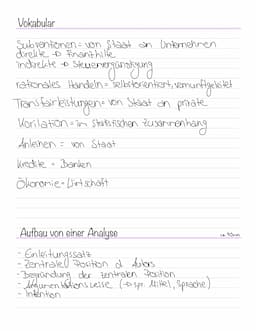 Vokabular
Subventionen = von Staat an Unternehmen
direkte → Finanzhilfe
indirekte → Steuervergünstigung
rationales Handeln = selbstorientiert, vernunftgeleitet
Transferleistungen = von Staat an private
Korrelation = im statistischen Zusammenhang
Anleihen = von Staat
Kredite = Banken
Ökonomie = Wirtschaft
Aufbau von einer Analyse
- Einleitungssatz
- Zentrale Position d. Autors
- Begründung der zentralen Position
- Argumentationsweise (→ spr. Mittel, Sprache)
- Intention